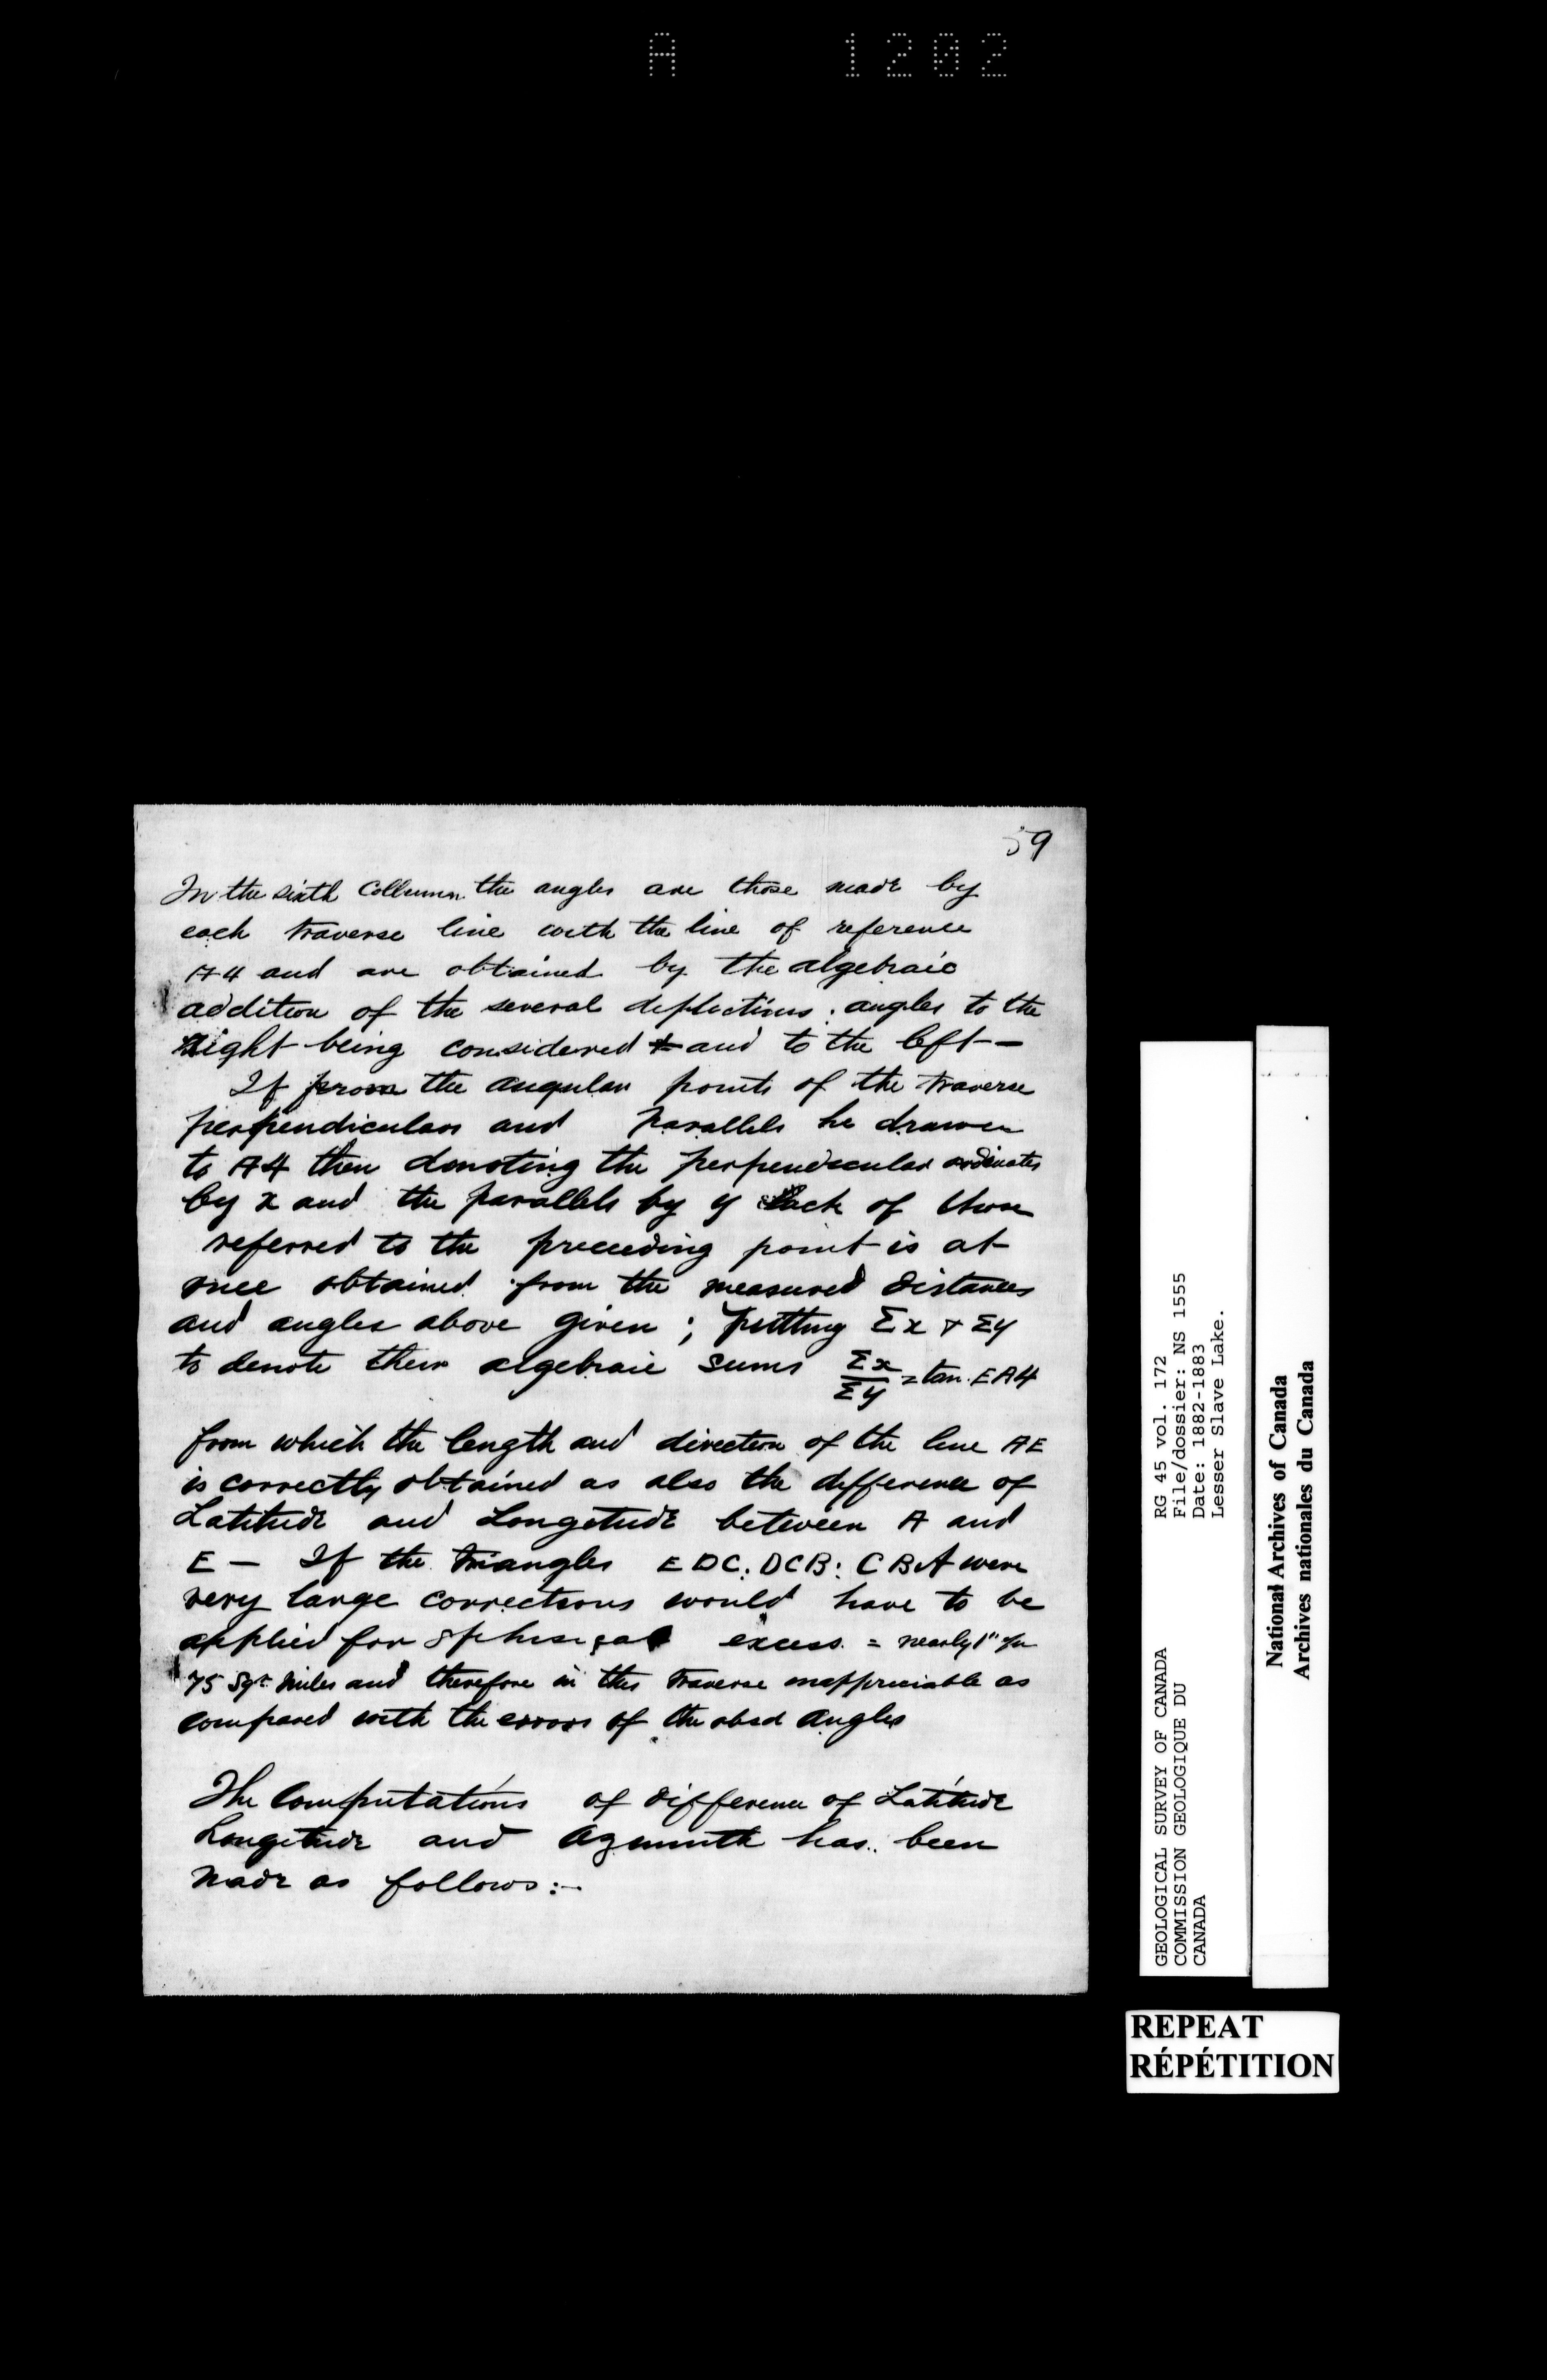 A 1202
59
In the sixth Collumn the angles are those made by
each traverse line with the line of reference
A4 and are obtained by the algebraic
addition of the several deflections: angles to the
right being considered + and to the left -
If from the angular points of the traverse
perpendiculars and parallels be drawn
to A4 then denoting the perpendicular ordinates
by x and the parallels by y Each of these
referred to the preceeding point is at
once obtained from the measured distances
and angles above given; putting Σx & Σy
to denote their algebraic sums Σx/Σy = tan. EA4
from which the length and direction of the line AE
is correctly obtained as also the difference of
Latitude and Longetude between A and
E - If the triangles EDC: DCB: CBA were
very large corrections would have to be
applied for spherical excess = nearly 1" for
75 Sqr. miles and therefore in this traverse inappreciable as
compared with the errors of the obsd angles
The Computations of difference of Latitude
Longetude and Azimuth has been
made as follows:-
GEOLOGICAL SURVEY OF CANADA RG 45 vol. 172
COMMISSION GEOLOGIQUE DU File/dossier: NS 1555
CANADA Date: 1882-1883
Lesser Slave Lake.
National Archives of Canada
Archives nationales du Canada
REPEAT
RÉPÉTITION